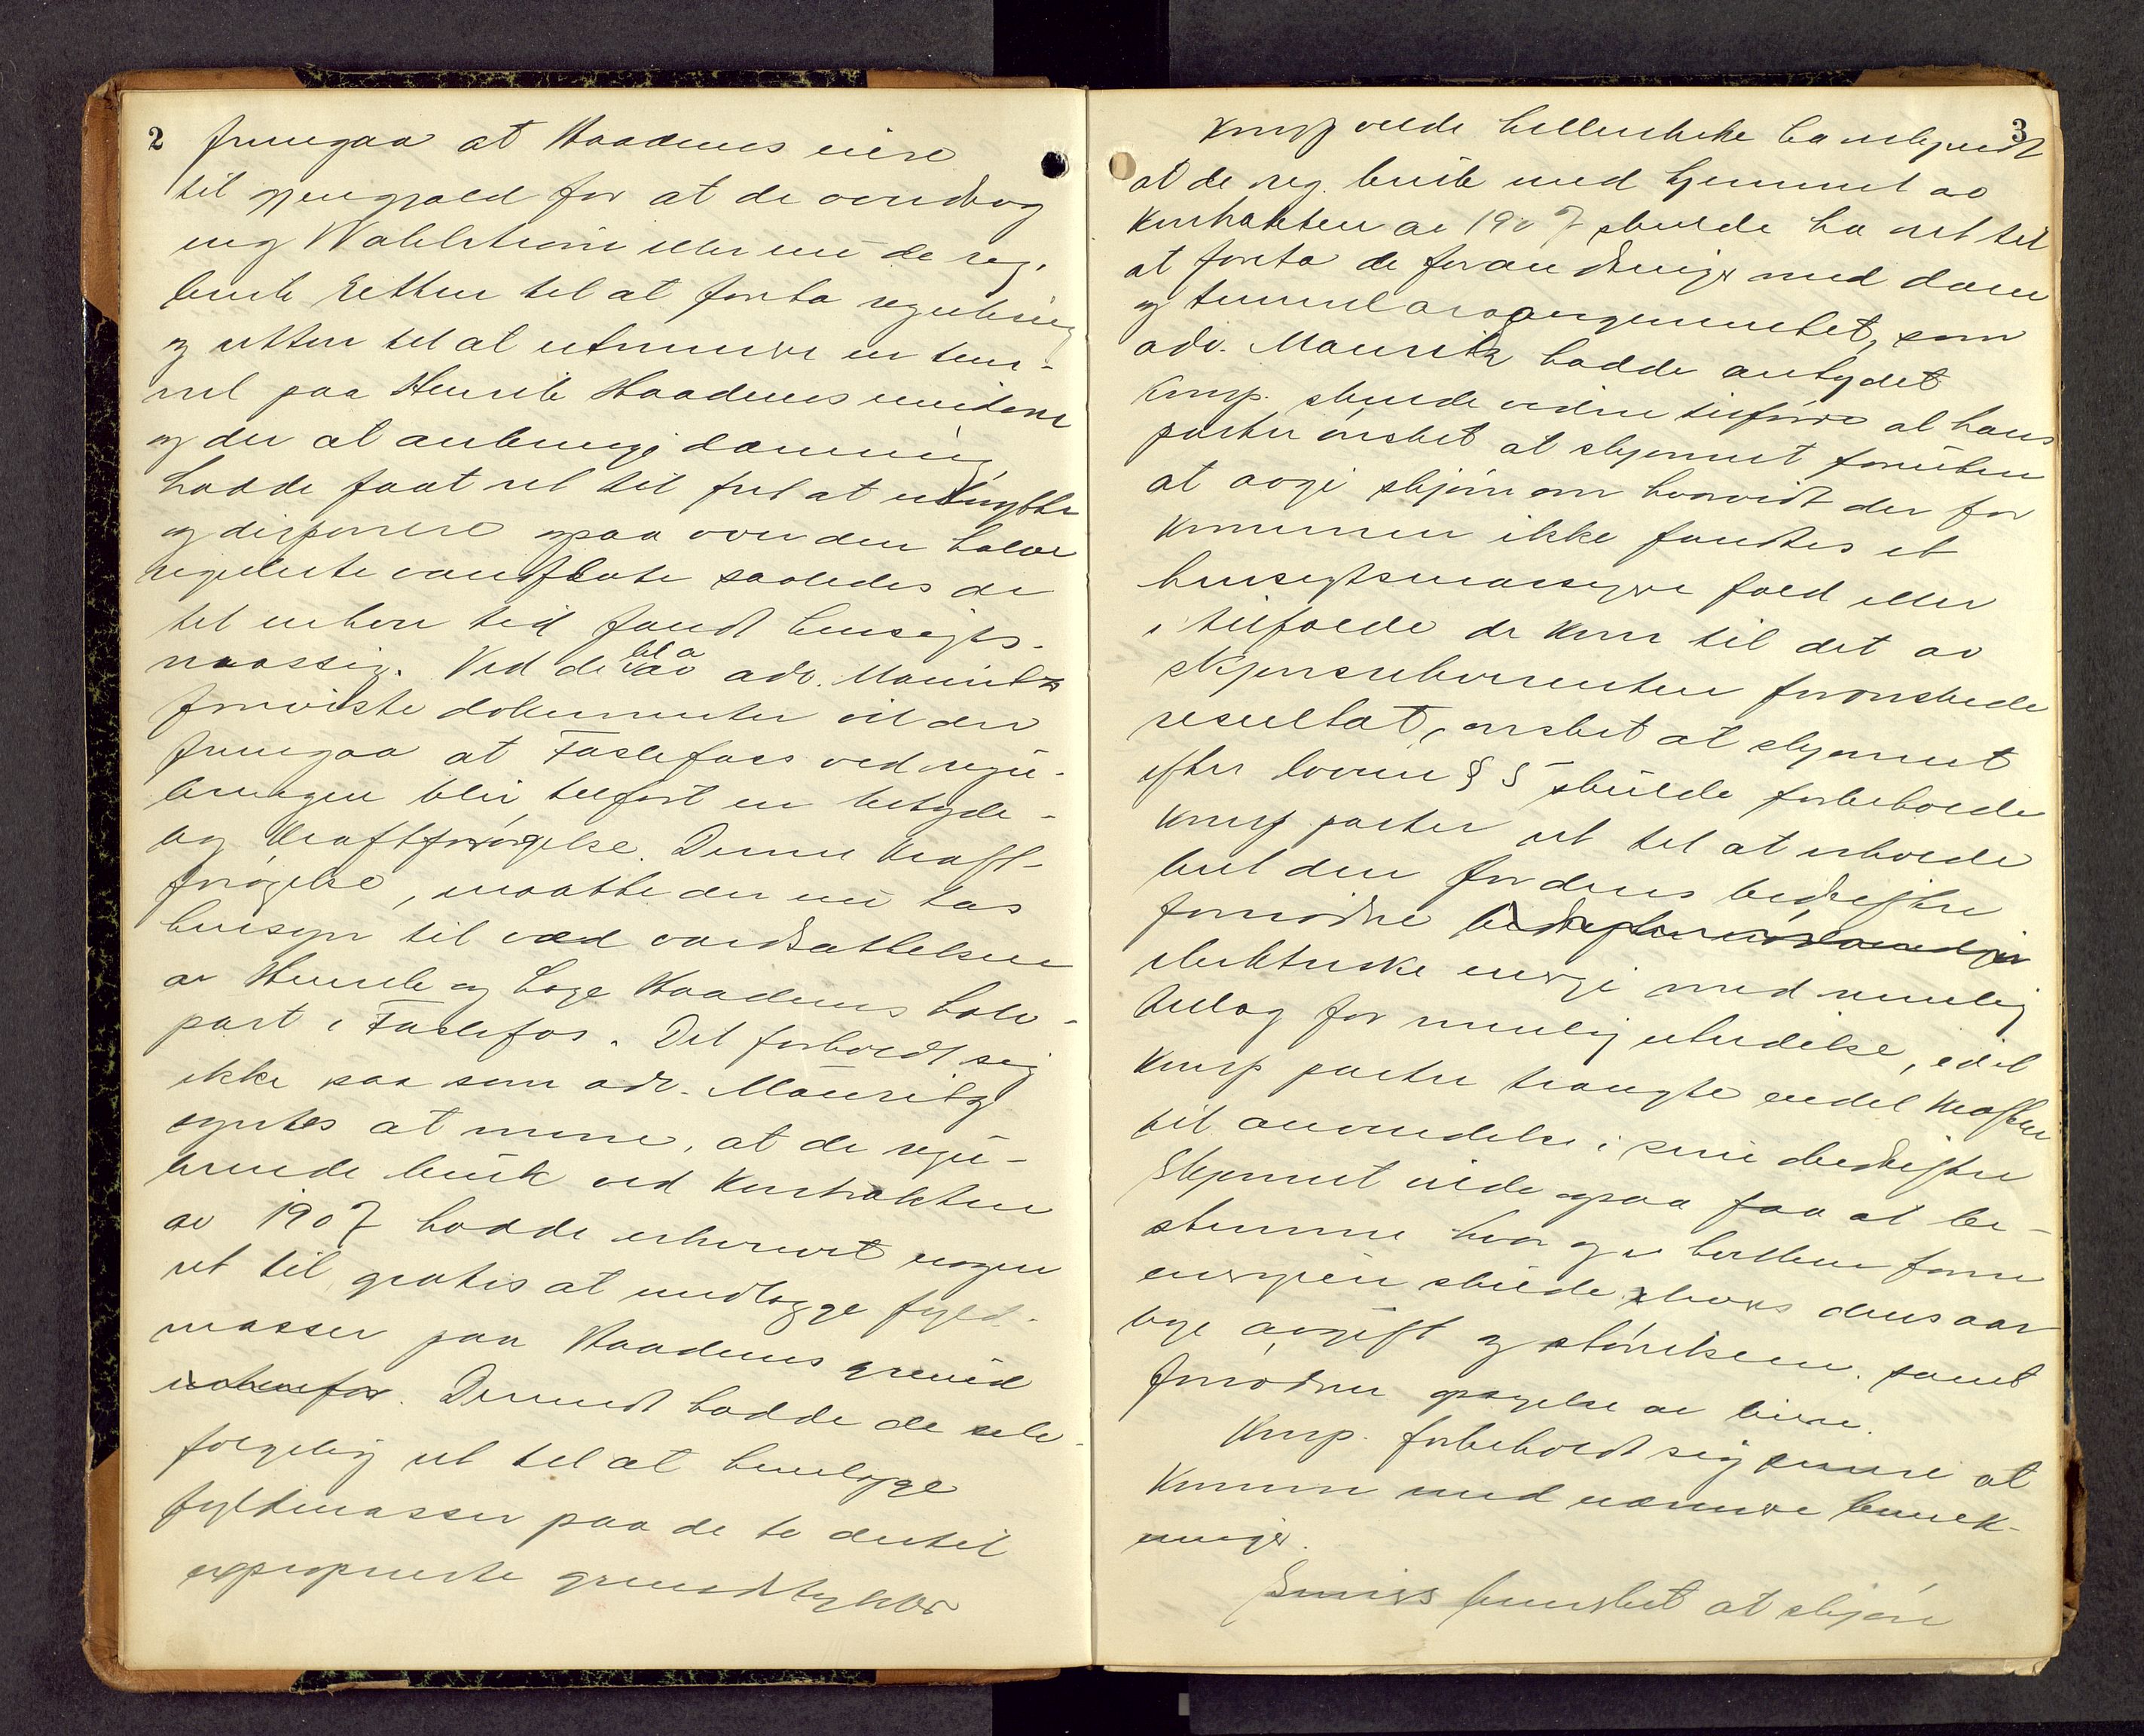 2
fremgaa at Haadems eiere
til gjengjæld for at de overdrog
ing Wahlstrøm eller nu de reg.
bruk retten til at foreta regulering
og retten til at utminere en tun-
nel paa Henrik Haadems eiendom
og der at anbringe dæmning,
hadde faat ret til frit at utnytte
og disponere ogsaa over den halve
regulerte vandflate saaledes de
til enhver tid fandt hensigts-
mæssig. Ved de bl a av adv. Mauritz
fremviste dokumenter vil der
fremgaa at Faslefoss ved regu-
leringen blir tilført en betyde-
lig kraftforøgelse. Denne kraft-
forøgelse, maatte der nu tas
hensyn til ved værdsættelsen
av Henrik og Lage Haadems halv-
part i Faslefos. Det forholdt sig
ikke saa som adv. Mauritz
syntes at mene, at de regu-
lerende bruk ved kontrakten
av 1907 hadde erhvervet nogen
ret til gratis at utlægge fyld-
masser paa Haadems grund
. Derimot hadde de selv-
følgelig ret til at henlægge
fyldmasser paa de to dertil
exproprierte grundstykker
3
Krisp vilde hellerikke ha erkjendt
at de reg. bruk med hjemmel av
kontrakten av 1907 skulde ha ret til
at foreta de forandringer med dam
og tunnelarrangementet, som
adv. Mauritz hadde antydet
Krisp. skulde videre tilføre at hans
parter ønsket at skjønnet foruten
at avgi skjøn om hvorvidt der for
kommunen ikke fandtes et
hensigtsmæssigere fald eller
i tilfælde de kom til det av
skjønsrekvirenten forønskede
resultat, ønsket at skjønnet
efter lovens § 5 skulde forbeholde
Krisp parter ret til at erholde
hel den for deres bedrifter
fornødne
elektriske energi med rimelig
tillæg for mulig utvidelse, idet
Krisp parter trængte endel kraften
til anvendelse i sine bedrifter
Skjønnet vilde ogsaa faa at be-
stemme hvor og i hvilken form
energien skulde leveres dens aar
lige avgift og størrelsen samt
fornøden opsigelse av leien.
Krisp. forbeholdt sig senere at
komme med nærmere bemerk-
ninger.
henstillet at skjøn